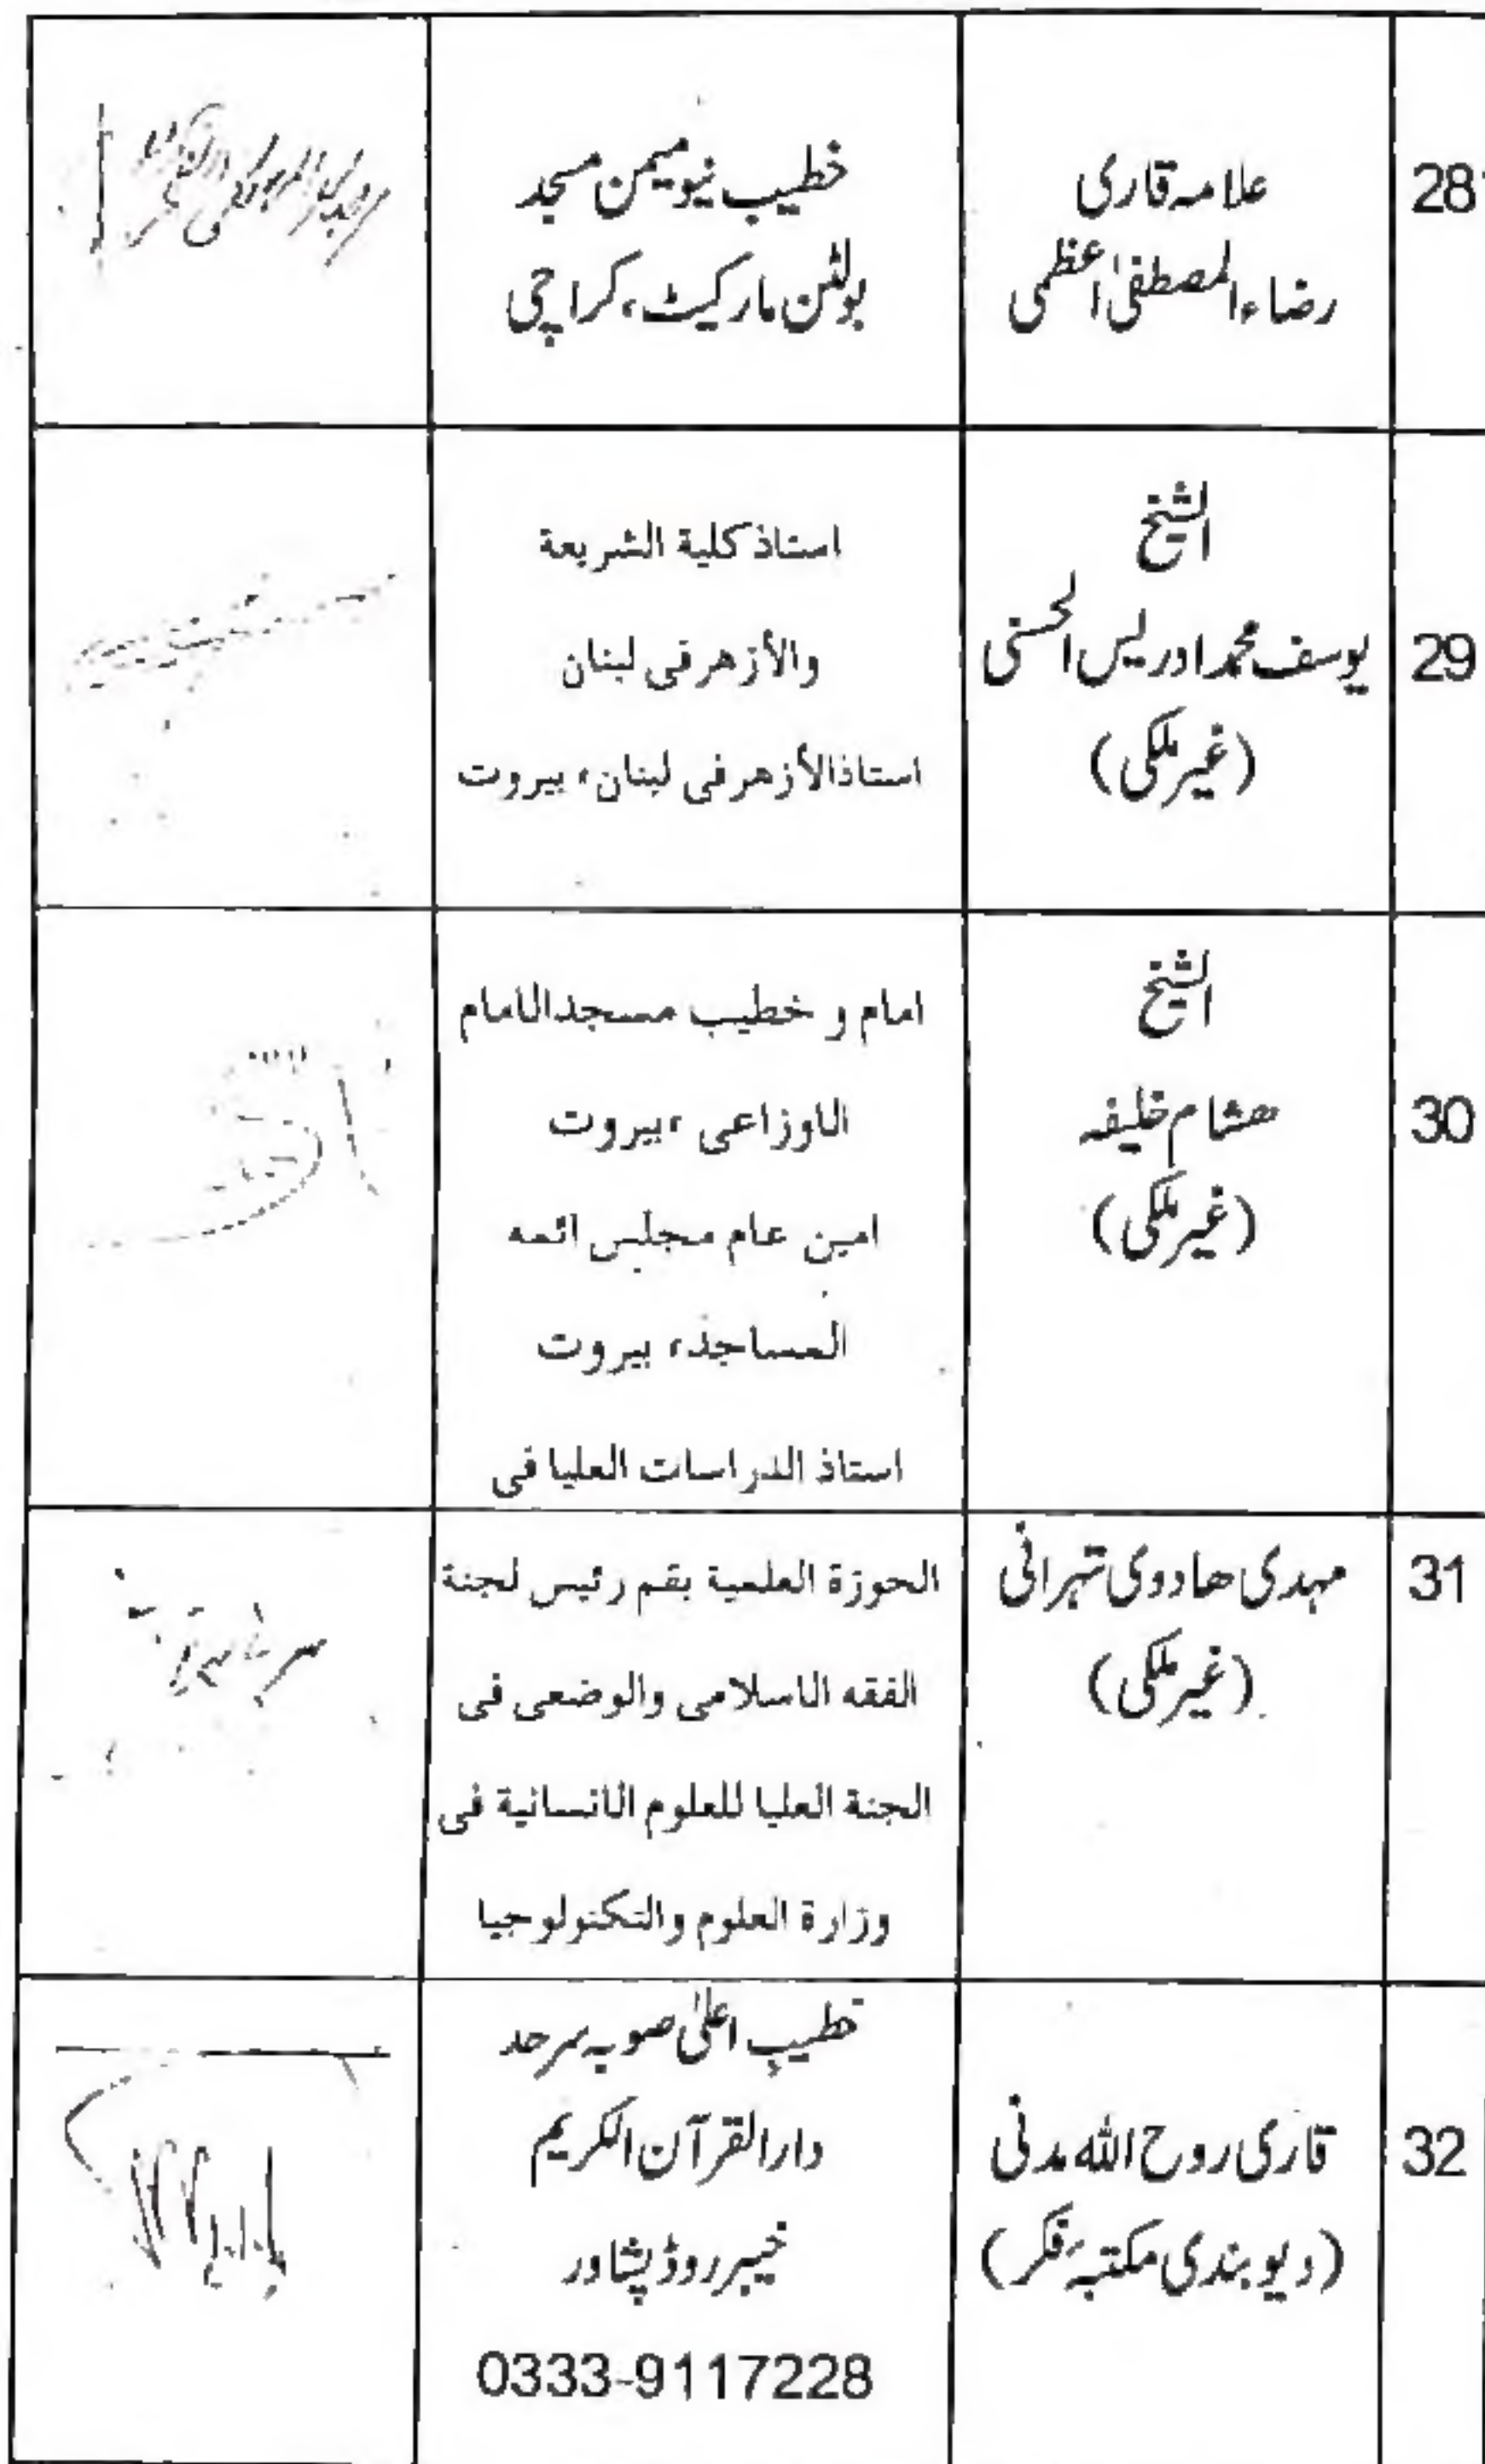 28
علامہ قاری
رضاء المصطفیٰ اعظمی
خطیب نیو میمن مسجد
بولٹن مارکیٹ، کراچی
29
الشیخ
یوسف محمد ادریس الحسنی
(غیر ملکی)
استاذ كلية الشريعة
والأزهر فى لبنان
استاذالأزهر فى لبنان، بيروت
30
الشیخ
ھشام خلیفہ
(غیر ملکی)
امام و خطيب مسجدالامام
الاوزاعى ،بيروت
امين عام مجلس ائمه
المساجد، بيروت
استاذ الدراسات العليا فى
31
مہدی ھادوی تہرانی
(غیر ملکی)
الحوزة العلمية بقم رئيس لجنة
الفقه الاسلامى والوضعى فى
الجنة العليا للعلوم الانسانية فى
وزارة العلوم والتكنولوجيا
32
قاری روح اللہ مدنی
(دیوبندی مکتبہ فکر)
خطیب اعلیٰ صوبہ سرحد
دارالقرآن الکریم
خیبر روڈ پشاور
0333-9117228